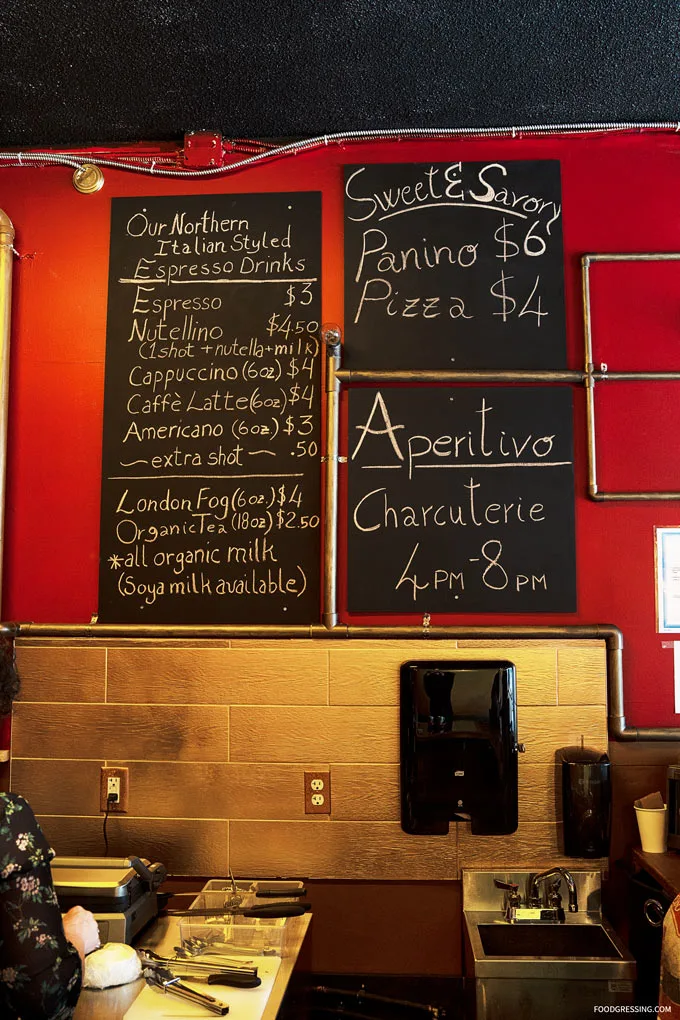 Our Northern
Italian Styled
Espresso Drinks
Espresso $3
Nutellino $4.50
(1shot + nutella + milk)
Cappuccino (6oz) $4
Caffè Latte (6oz) $4
Americano (6oz) $3
~ extra shot ~ .50
London Fog (6oz.) $4
Organic Tea (18oz) $2.50
*all organic milk
(Soya milk available)
Sweet & Savory
Panino $6
Pizza $4
Aperitivo
Charcuterie
4PM-8PM
FOODGRESSING.COM